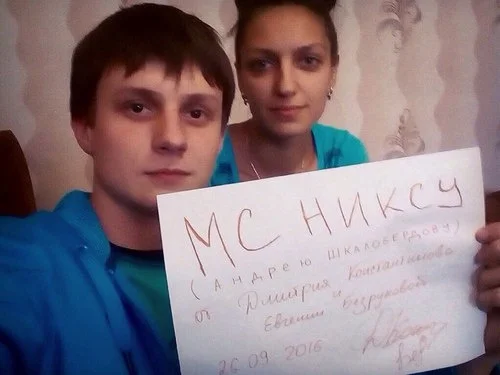 МС НИКСУ
(АНДРЕЮ ШКАЛОБЕРДОВУ)
от Дмитрия Константинова
и
Евгении Безруковой
26.09.2016